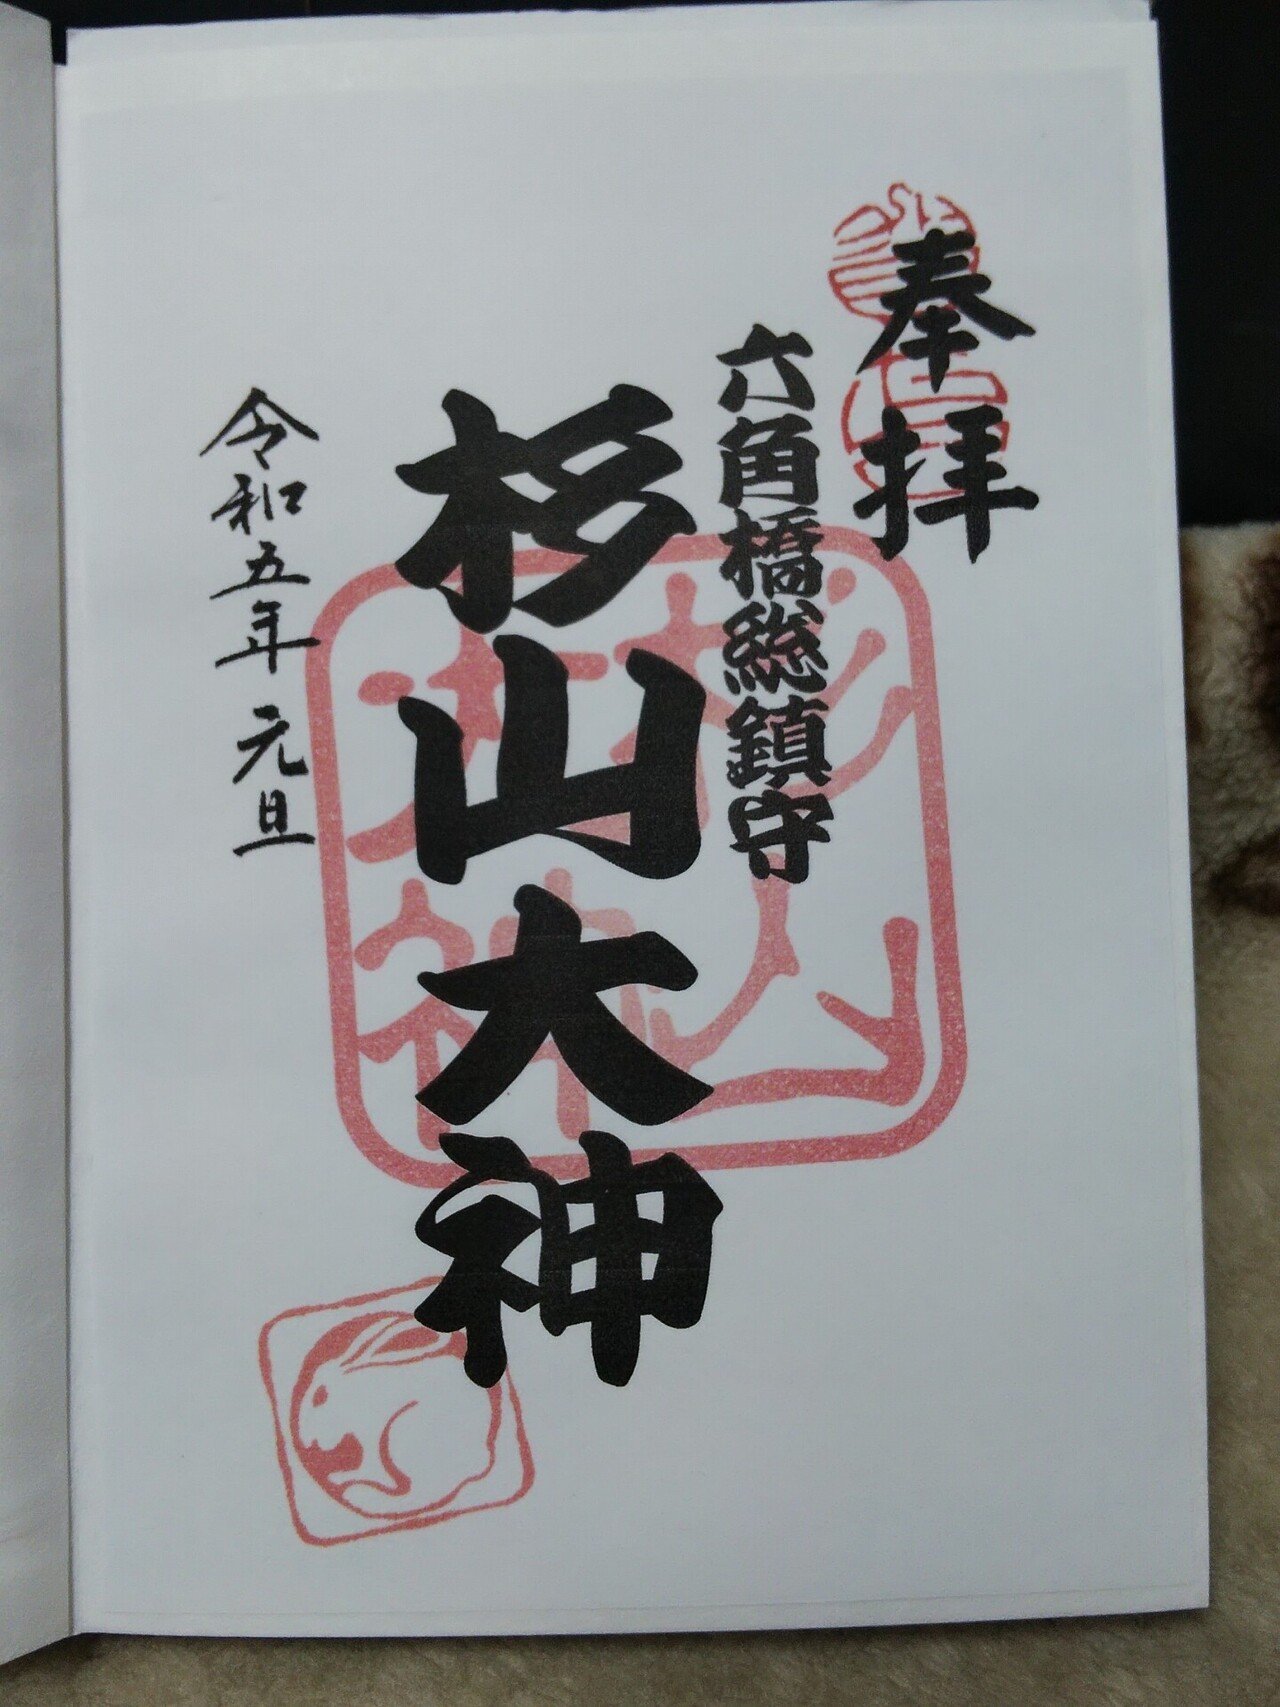 奉拝
六角橋総鎮守
杉山大神
令和五年 元旦